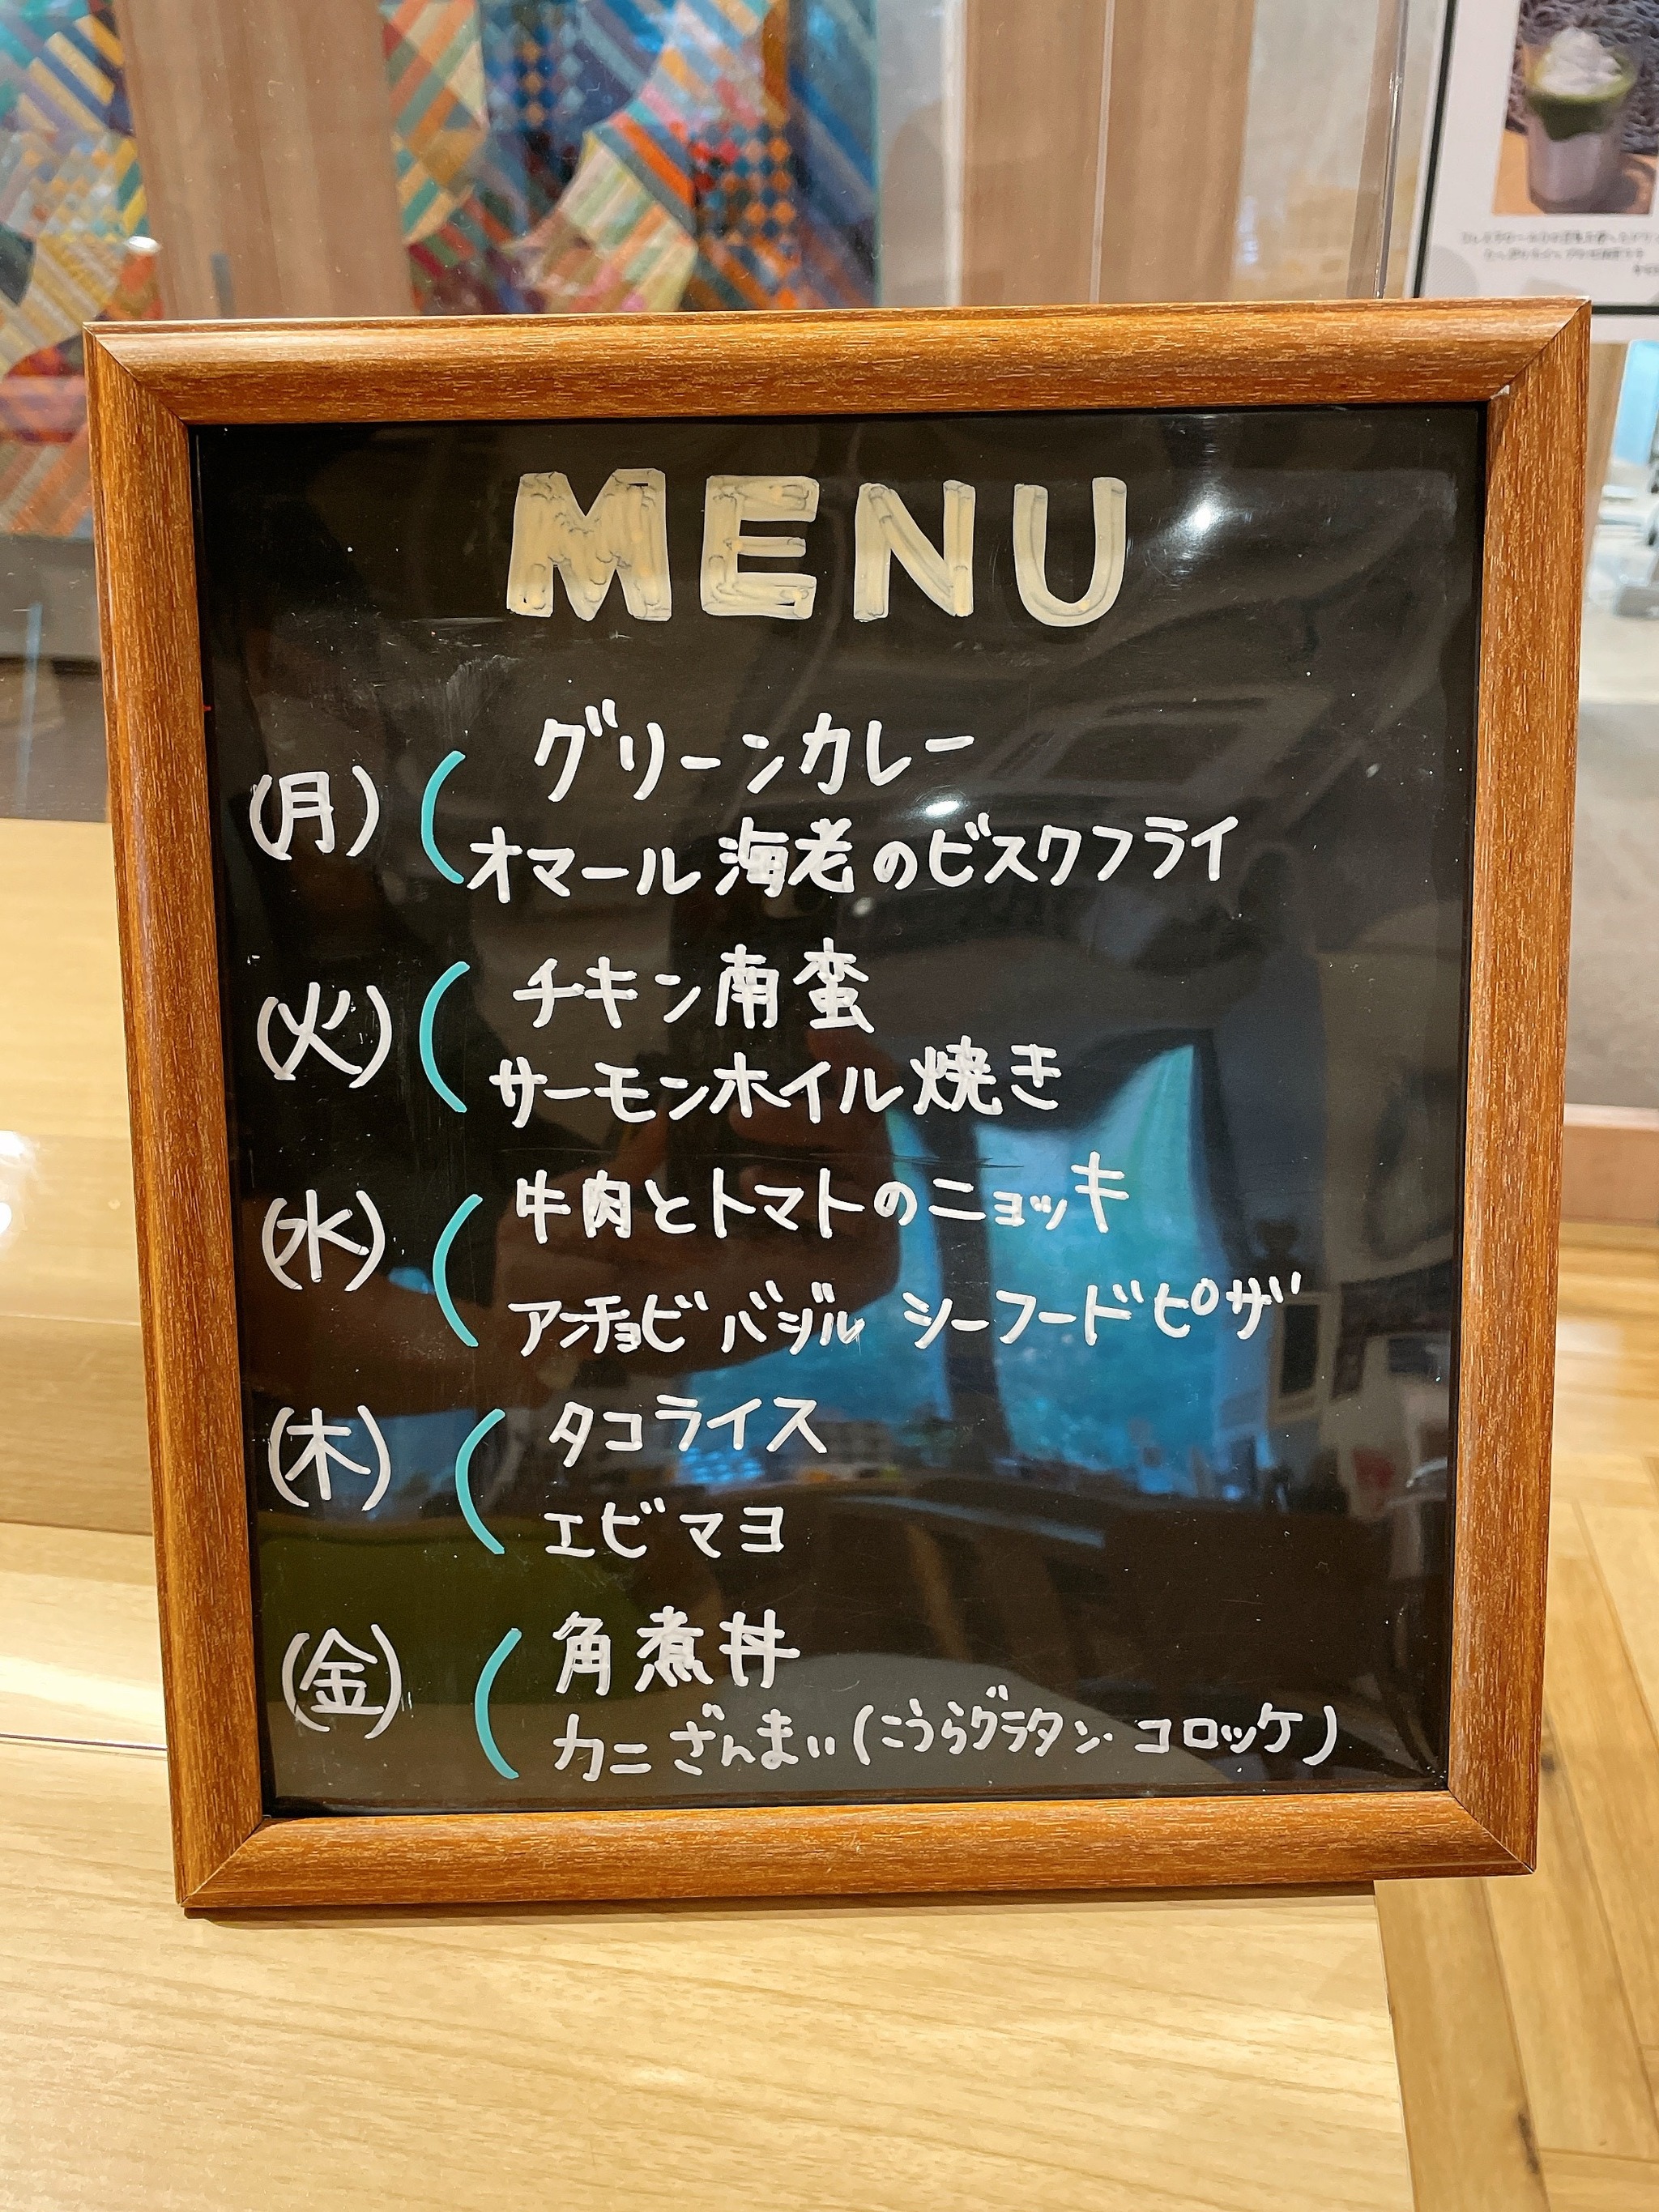 MENU
(月) グリーンカレー
オマール海老のビスクフライ
(火) チキン南蛮
サーモンホイル焼き
(水) 牛肉とトマトのニョッキ
アンチョビバジル シーフードピザ
(木) タコライス
エビマヨ
(金) 角煮丼
カニざんまい(こうらグラタン・コロッケ)